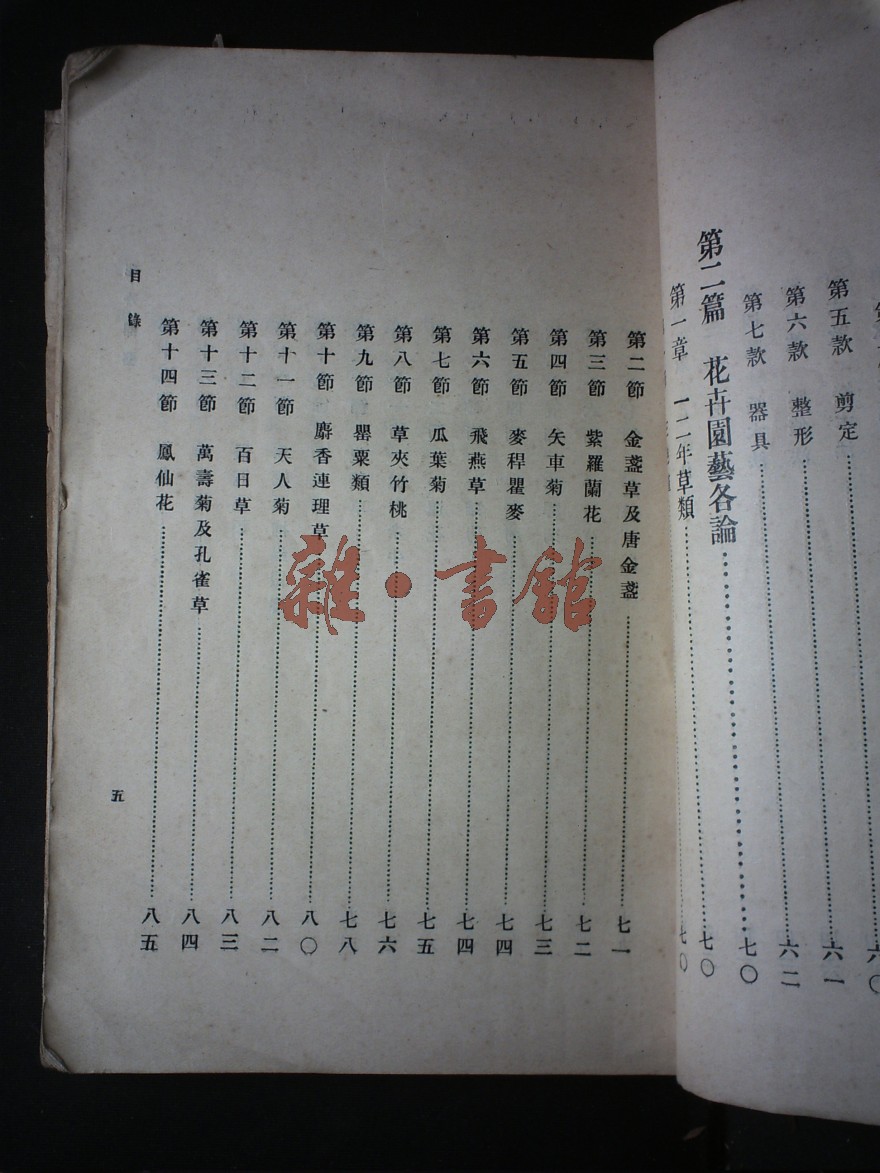 第五款 剪定……六〇
第六款 整形……六一
第七款 器具……六二
第二篇 花卉園藝各論……七〇
第一章 一二年草類……七〇
七〇
第二節 金盞草及唐金盞……七一
第三節 紫羅蘭花……七二
第四節 矢車菊……七三
第五節 麥稈瞿麥……七四
第六節 飛燕草……七四
第七節 瓜葉菊……七五
第八節 草夾竹桃……七六
第九節 罌粟類……七八
第十節 麝香連理草……八〇
第十一節 天人菊……八二
第十二節 百日草……八三
第十三節 萬壽菊及孔雀草……八四
第十四節 鳳仙花……八五
目錄
五
雜·書館